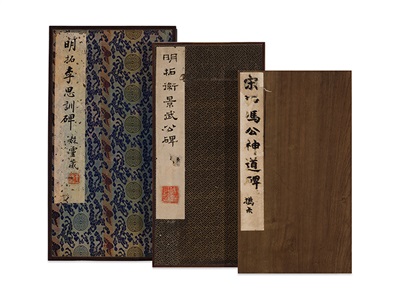 明拓李思訓碑
明拓衛景武公碑
宋拓馮公神道碑